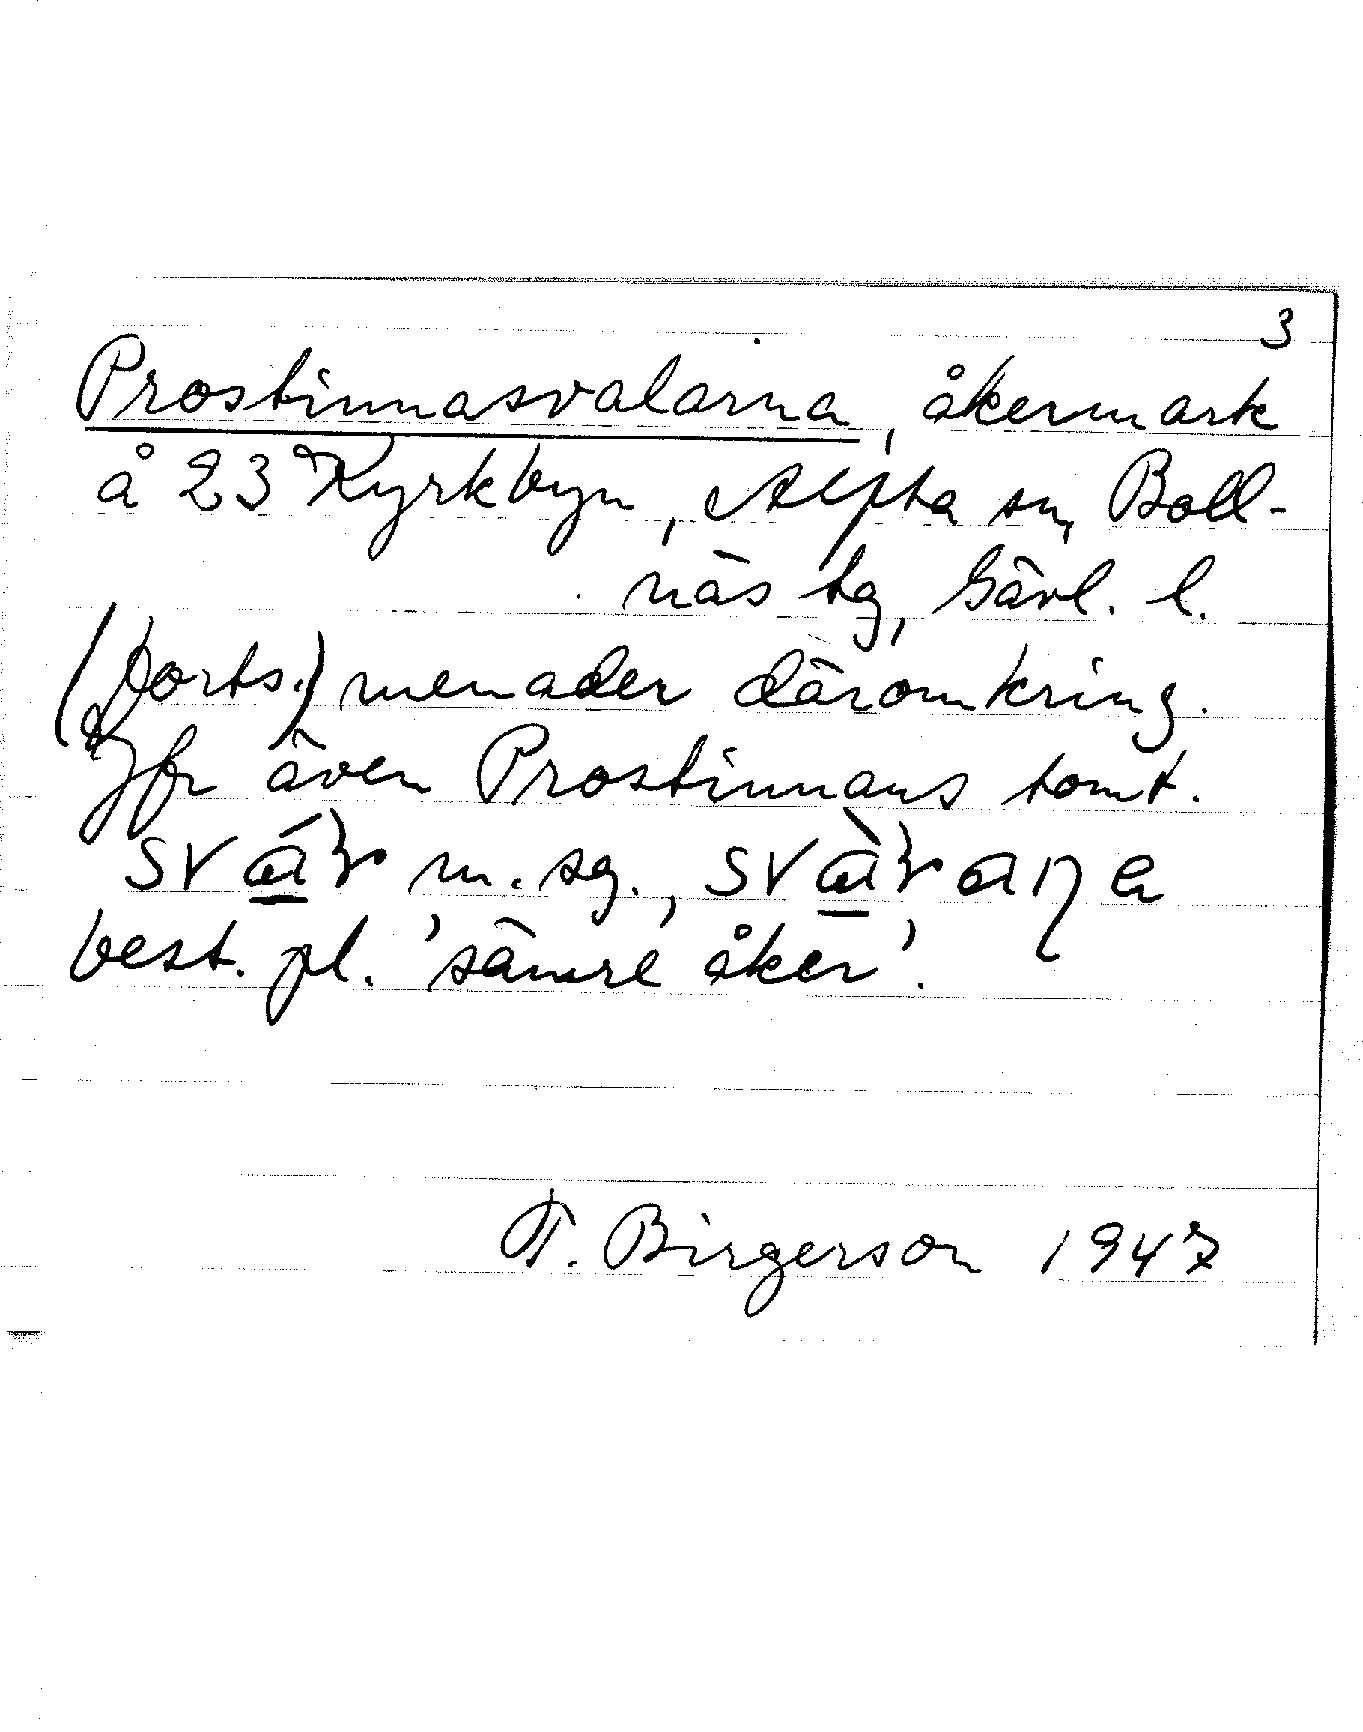 3
Prostinnasvalarna, åkermark
å 23 Kyrkbyn, Alfta sn, Boll-
näs tg, Gävl. l.
(forts.) menader däromkring.
Jfr även Prostinnans tomt.
m. sg.,
best. pl. 'sämre åker'.
T. Birgerson 1947